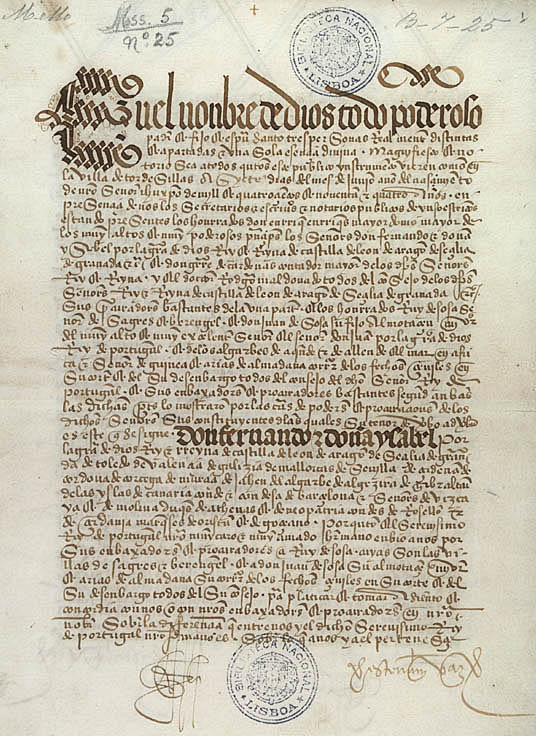 Mello
Mss. 5
nº. 25
B-7-25
BIBLIOTECA NACIONAL LISBOA
En el nonbre de dios todo poderoso
padre & fijo & espu santo tres personas realmente distintas
& apartadas & una sola esencia divina. Magnifiesto & no
torio sea a todos quantos este publico ynstrumento vieren como en
la villa de tordesillas a siete dias del mes de junio año del nasçimiento
de nro señor ihu xpo de mill & quatroçientos & noventa & quatro años. en
presençia de nos los secretarios & escrivanos & notarios publicos de yuso escriptos
estando presentes los honrrados don enrrique enrriques mayordomo mayor de
los muy altos & muy poderosos prinçipes los señores don fernando & doña
ysabel por la graçia de dios Rey & Reyna de castilla de leon de aragon de seçilia
de granada & & don gutierre de cardenas contador mayor de los dhos señores
Rey & Reyna. y el doctor Rodrigo maldonado todos del consejo de los dhos
señores Rey & Reyna de castilla de leon de aragon de seçilia de granada &
sus procuradores bastantes de la una parte. & los honrrados Ruy de sosa se
ñor de sagres & berengel. & don juan de sosa su fijo almotaçen mayor
del muy alto & muy exçelente señor el señor don juan por la graçia de dios
Rey de portugal. & de los algarbes de aquende & de allende el mar en afri
ca & señor de guinea & arias de almadana corregidor de los fechos çeviles en
su corte & del su desenbargo todos del consejo del dho señor Rey de
portugal. & sus enbaxadores & procuradores bastantes segund anbas
las dichas partes lo mostraron por las cartas de poderes & procuraçiones de los
dichos señores sus constituyentes de las quales su tenor de verbo ad verbo
es este que se sigue Don fernando & doña ysabel por
la graçia de dios Rey & Reyna de castilla de leon de aragon de seçilia de grana
da de toledo de valençia de galizia de mallorcas de sevilla de çerdeña de
cordova de corçega de murçia de jahen del algarbe de algezira de gibraltar
de las yslas de canaria conde & condesa de barçelona & señores de vizca
ya & de molina duques de athenas & de neopatria condes de Rosellon &
de çerdania marqueses de oristan & de goçiano. Por quanto el serenisimo
Rey de portugal nro muy caro & muy amado hermano enbio a nos por
sus enbaxadores & procuradores a Ruy de sosa cuyas son las vi
llas de sagres & berengel. & a don juan de sosa su almotaçen mayor
& arias de almadana su corregidor de los fechos çeviles en su corte & del
su desenbargo todos del su consejo. para platicar & tomar asiento &
concordia con nos o con nros enbaxadores & procuradores en nro
nonbre. sobre la diferençia que entre nos y el dicho serenisimo Rey
de portugal nro hermano es sobre lo que a nos y a el pertenesçe
BIBLIOTECA NACIONAL LISBOA